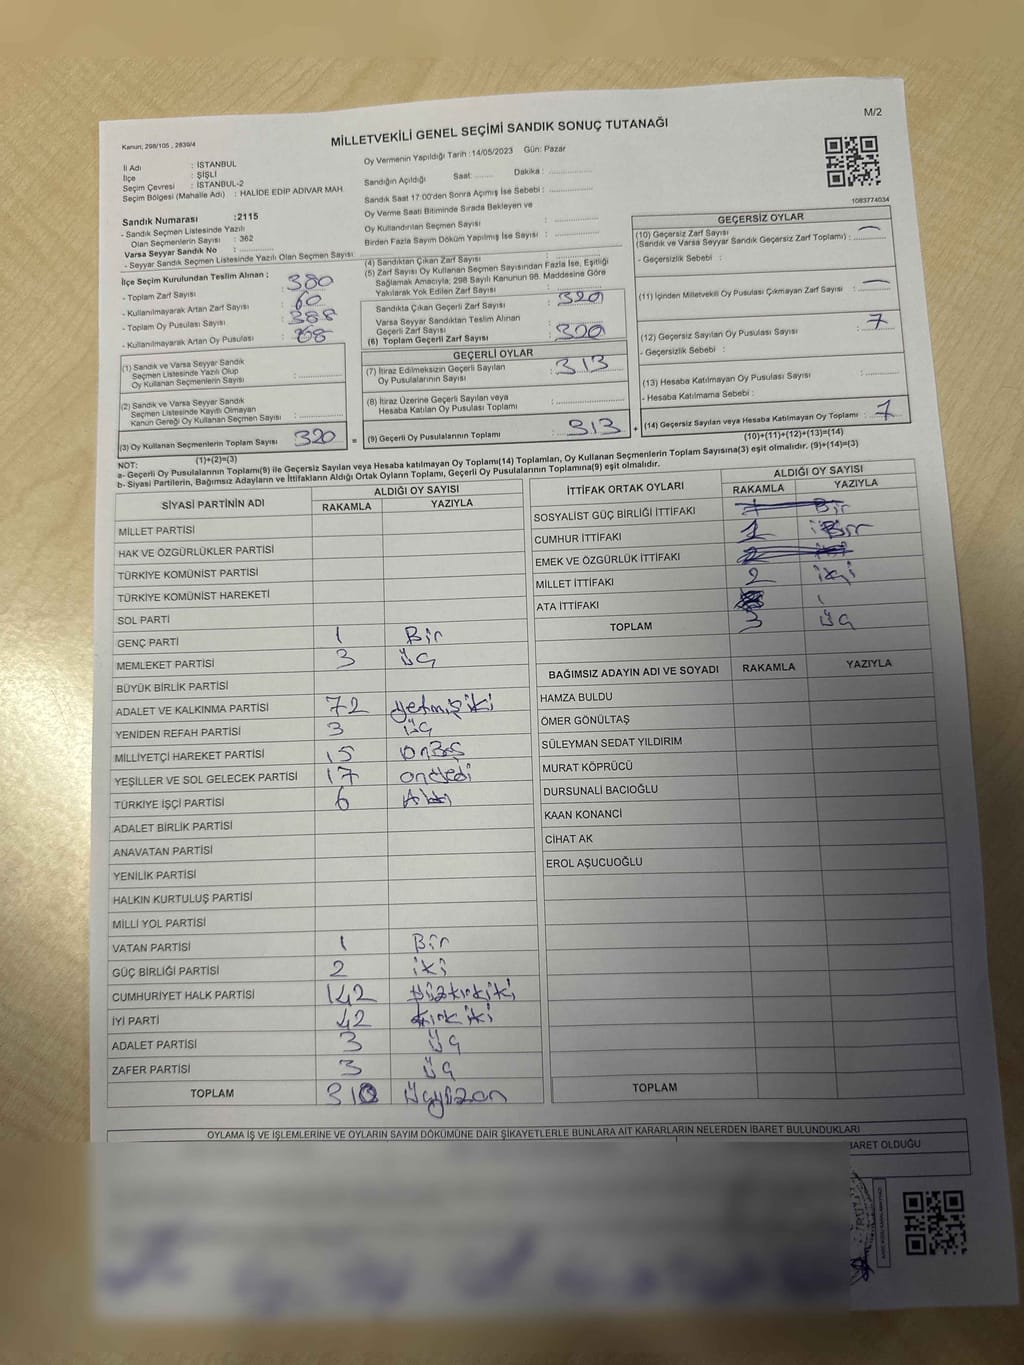 M/2
Kanun; 298/105 , 2839/4
MİLLETVEKİLİ GENEL SEÇİMİ SANDIK SONUÇ TUTANAĞI
İl Adı : İSTANBUL
İlçe : ŞİŞLİ
Seçim Çevresi : İSTANBUL-2
Seçim Bölgesi (Mahalle Adı) : HALİDE EDİP ADIVAR MAH.
Oy Vermenin Yapıldığı Tarih :14/05/2023 Gün: Pazar
Sandığın Açıldığı Saat: ........ Dakika : ..............
Sandık Saat 17 00'den Sonra Açımış İse Sebebi : ..............
Oy Verme Saati Bitiminde Sırada Bekleyen ve
Oy Kullandırılan Seçmen Sayısı : ..............
Birden Fazla Sayım Döküm Yapılmış İse Sayısı : ..............
1083774034
Sandık Numarası :2115
- Sandık Seçmen Listesinde Yazılı
Olan Seçmenlerin Sayısı : 362
Varsa Seyyar Sandık No : ..............
- Seyyar Sandık Seçmen Listesinde Yazılı Olan Seçmen Sayısı : ..............
İlçe Seçim Kurulundan Teslim Alınan :
- Toplam Zarf Sayısı : 380
- Kullanılmayarak Artan Zarf Sayısı : 60
- Toplam Oy Pusulası Sayısı : 388
- Kullanılmayarak Artan Oy Pusulası : 68
(1) Sandık ve Varsa Seyyar Sandık
Seçmen Listesinde Yazılı Olup
Oy Kullanan Seçmenlerin Sayısı : ..............
(2) Sandık ve Varsa Seyyar Sandık
Seçmen Listesinde Kayıtlı Olmayan
Kanun Gereği Oy Kullanan Seçmen Sayısı : ..............
(3) Oy Kullanan Seçmenlerin Toplam Sayısı : 320
(1)+(2)=(3)
(4) Sandıktan Çıkan Zarf Sayısı : ..............
(5) Zarf Sayısı Oy Kullanan Seçmen Sayısından Fazla İse, Eşitliği
Sağlamak Amacıyla; 298 Sayılı Kanunun 98. Maddesine Göre
Yakılarak Yok Edilen Zarf Sayısı : ..............
Sandıkta Çıkan Geçerli Zarf Sayısı : 320
Varsa Seyyar Sandıktan Teslim Alınan
Geçerli Zarf Sayısı : ..............
(6) Toplam Geçerli Zarf Sayısı : 320
GEÇERLİ OYLAR
(7) İtiraz Edilmeksizin Geçerli Sayılan
Oy Pusulalarının Sayısı : 313
(8) İtiraz Üzerine Geçerli Sayılan veya
Hesaba Katılan Oy Pusulası Toplamı : ..............
= (9) Geçerli Oy Pusulalarının Toplamı : 313
GEÇERSİZ OYLAR
(10) Geçersiz Zarf Sayısı
(Sandık ve Varsa Seyyar Sandık Geçersiz Zarf Toplamı) : —
- Geçersizlik Sebebi :
(11) İçinden Milletvekili Oy Pusulası Çıkmayan Zarf Sayısı : —
(12) Geçersiz Sayılan Oy Pusulası Sayısı : 7
- Geçersizlik Sebebi :
(13) Hesaba Katılmayan Oy Pusulası Sayısı : ..............
- Hesaba Katılmama Sebebi :
+ (14) Geçersiz Sayılan veya Hesaba Katılmayan Oy Toplamı : 7
(10)+(11)+(12)+(13)=(14)
NOT:
a- Geçerli Oy Pusulalarının Toplamı(9) ile Geçersiz Sayılan veya Hesaba katılmayan Oy Toplamı(14) Toplamları, Oy Kullanan Seçmenlerin Toplam Sayısına(3) eşit olmalıdır. (9)+(14)=(3)
b- Siyasi Partilerin, Bağımsız Adayların ve İttifakların Aldığı Ortak Oyların Toplamı, Geçerli Oy Pusulalarının Toplamına(9) eşit olmalıdır.
SİYASİ PARTİNİN ADI ALDIĞI OY SAYISI
RAKAMLA YAZIYLA
MİLLET PARTİSİ
HAK VE ÖZGÜRLÜKLER PARTİSİ
TÜRKİYE KOMÜNİST PARTİSİ
TÜRKİYE KOMÜNİST HAREKETİ
SOL PARTİ
GENÇ PARTİ 1 Bir
MEMLEKET PARTİSİ 3 üç
BÜYÜK BİRLİK PARTİSİ
ADALET VE KALKINMA PARTİSİ 72 yetmişiki
YENİDEN REFAH PARTİSİ 3 üç
MİLLİYETÇİ HAREKET PARTİSİ 15 onBeş
YEŞİLLER VE SOL GELECEK PARTİSİ 17 onyedi
TÜRKİYE İŞÇİ PARTİSİ 6 Altı
ADALET BİRLİK PARTİSİ
ANAVATAN PARTİSİ
YENİLİK PARTİSİ
HALKIN KURTULUŞ PARTİSİ
MİLLİ YOL PARTİSİ
VATAN PARTİSİ 1 Bir
GÜÇ BİRLİĞİ PARTİSİ 2 iki
CUMHURİYET HALK PARTİSİ 142 yüzkırkiki
İYİ PARTİ 42 kırkiki
ADALET PARTİSİ 3 üç
ZAFER PARTİSİ 3 üç
TOPLAM 310 üçyüzon
İTTİFAK ORTAK OYLARI ALDIĞI OY SAYISI
RAKAMLA YAZIYLA
SOSYALİST GÜÇ BİRLİĞİ İTTİFAKI 1 Bir
CUMHUR İTTİFAKI 1 Bir
EMEK VE ÖZGÜRLÜK İTTİFAKI 2 iki
MİLLET İTTİFAKI 2 iki
ATA İTTİFAKI
TOPLAM 3 üç
BAĞIMSIZ ADAYIN ADI VE SOYADI RAKAMLA YAZIYLA
HAMZA BULDU
ÖMER GÖNÜLTAŞ
SÜLEYMAN SEDAT YILDIRIM
MURAT KÖPRÜCÜ
DURSUNALİ BACIOĞLU
KAAN KONANCİ
CİHAT AK
EROL AŞUCUOĞLU
TOPLAM
OYLAMA İŞ VE İŞLEMLERİNE VE OYLARIN SAYIM DÖKÜMÜNE DAİR ŞİKAYETLERLE BUNLARA AİT KARARLARIN NELERDEN İBARET BULUNDUKLARI
İBARET OLDUĞU